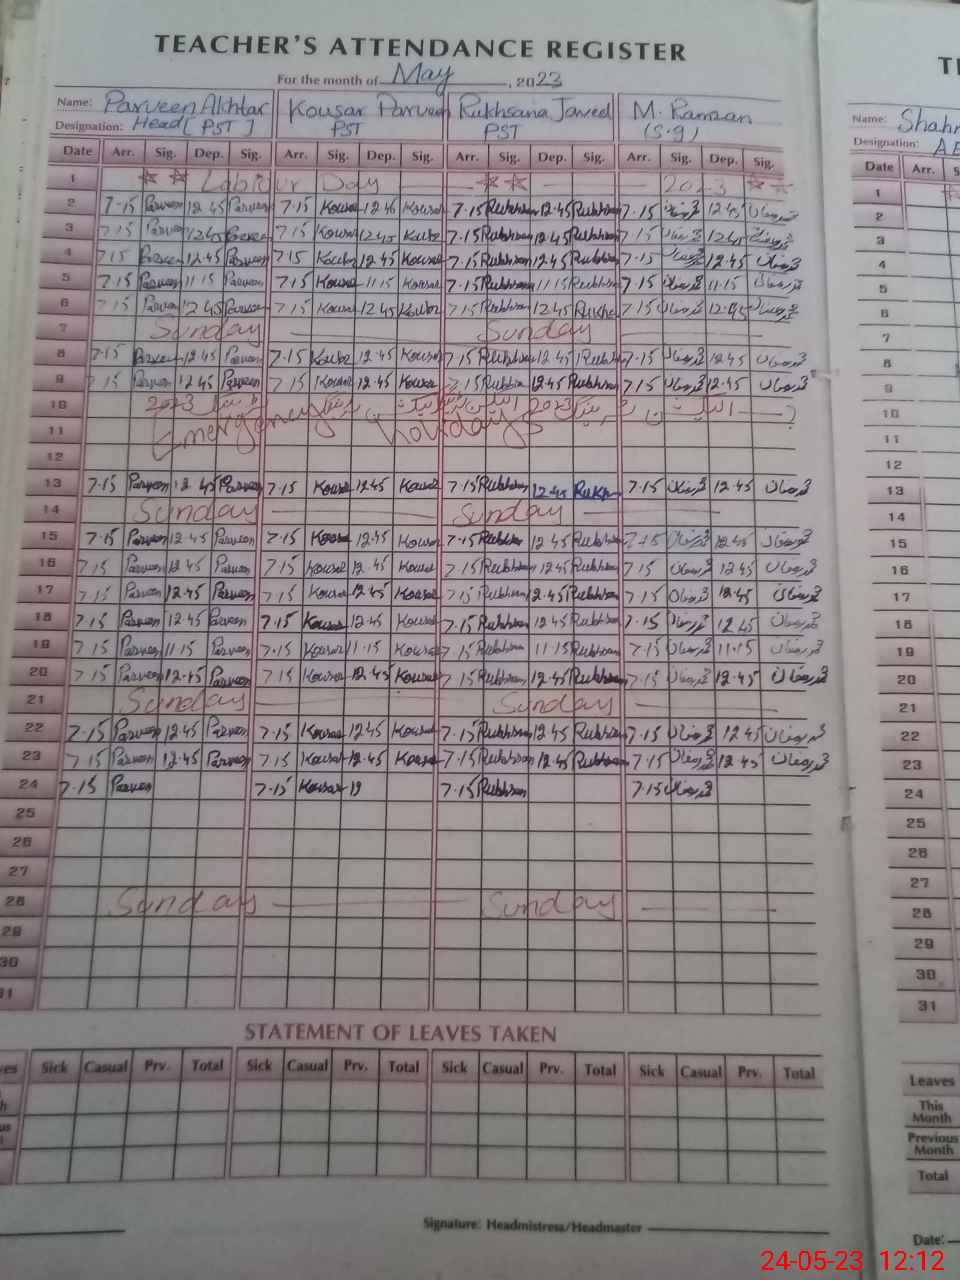 TEACHER'S ATTENDANCE REGISTER
For the month of May, 2023
Name: Parveen Akhtar Kousar Parveen Rukhsana Javeed M. Ramzan
Designation: Head [PST] PST PST (S.g)
Date Arr. Sig. Dep. Sig. Arr. Sig. Dep. Sig. Arr. Sig. Dep. Sig. Arr. Sig. Dep. Sig.
1 Labour Day 2023
2 7-15 Parveen 12.45 Parveen 7.15 Kousar 12.45 Kousar 7.15 Rukhsana 12.45 Rukhsana 7.15 محمد رمضان 12.45 محمد رمضان
3 7.15 Parveen 12.45 Parveen 7.15 Kousar 12.45 Kousar 7.15 Rukhsana 12.45 Rukhsana 7.15 محمد رمضان 12.45 محمد رمضان
4 7.15 Parveen 12.45 Parveen 7.15 Kousar 12.45 Kousar 7.15 Rukhsana 12.45 Rukhsana 7.15 محمد رمضان 12.45 محمد رمضان
5 7.15 Parveen 11.15 Parveen 7.15 Kousar 11.15 Kousar 7.15 Rukhsana 11.15 Rukhsana 7.15 محمد رمضان 11.15 محمد رمضان
6 7.15 Parveen 12.45 Parveen 7.15 Kousar 12.45 Kousar 7.15 Rukhsana 12.45 Rukhsana 7.15 محمد رمضان 12.45 محمد رمضان
7 Sunday Sunday
8 7.15 Parveen 12.45 Parveen 7.15 Kousar 12.45 Kousar 7.15 Rukhsana 12.45 Rukhsana 7.15 محمد رمضان 12.45 محمد رمضان
9 7.15 Parveen 12.45 Parveen 7.15 Kousar 12.45 Kousar 7.15 Rukhsana 12.45 Rukhsana 7.15 محمد رمضان 12.45 محمد رمضان
10 2023 2023
11 Emergency holidays
12
13 7.15 Parveen 12.45 Parveen 7.15 Kousar 12.45 Kousar 7.15 Rukhsana 12.45 Rukhsana 7.15 محمد رمضان 12.45 محمد رمضان
14 Sunday Sunday
15 7.15 Parveen 12.45 Parveen 7.15 Kousar 12.45 Kousar 7.15 Rukhsana 12.45 Rukhsana 7.15 محمد رمضان 12.45 محمد رمضان
16 7.15 Parveen 12.45 Parveen 7.15 Kousar 12.45 Kousar 7.15 Rukhsana 12.45 Rukhsana 7.15 محمد رمضان 12.45 محمد رمضان
17 7.15 Parveen 12.45 Parveen 7.15 Kousar 12.45 Kousar 7.15 Rukhsana 12.45 Rukhsana 7.15 محمد رمضان 12.45 محمد رمضان
18 7.15 Parveen 12.45 Parveen 7.15 Kousar 12.45 Kousar 7.15 Rukhsana 12.45 Rukhsana 7.15 محمد رمضان 12.45 محمد رمضان
19 7.15 Parveen 11.15 Parveen 7.15 Kousar 11.15 Kousar 7.15 Rukhsana 11.15 Rukhsana 7.15 محمد رمضان 11.15 محمد رمضان
20 7.15 Parveen 12.45 Parveen 7.15 Kousar 12.45 Kousar 7.15 Rukhsana 12.45 Rukhsana 7.15 محمد رمضان 12.45 محمد رمضان
21 Sunday Sunday
22 7.15 Parveen 12.45 Parveen 7.15 Kousar 12.45 Kousar 7.15 Rukhsana 12.45 Rukhsana 7.15 محمد رمضان 12.45 محمد رمضان
23 7.15 Parveen 12.45 Parveen 7.15 Kousar 12.45 Kousar 7.15 Rukhsana 12.45 Rukhsana 7.15 محمد رمضان 12.45 محمد رمضان
24 7.15 Parveen 7.15 Kousar 7.15 Rukhsana 7.15 محمد رمضان
25
26
27
28 Sunday Sunday
29
30
31
STATEMENT OF LEAVES TAKEN
Sick Casual Prv. Total Sick Casual Prv. Total Sick Casual Prv. Total Sick Casual Prv. Total
Signature: Headmistress/Headmaster
Name:
Designation:
Date Arr.
1
2
3
4
5
6
7
8
9
10
11
12
13
14
15
16
17
18
19
20
21
22
23
24
25
26
27
28
29
30
31
Leaves
This Month
Previous Month
Total
Date:
24-05-23 12:12